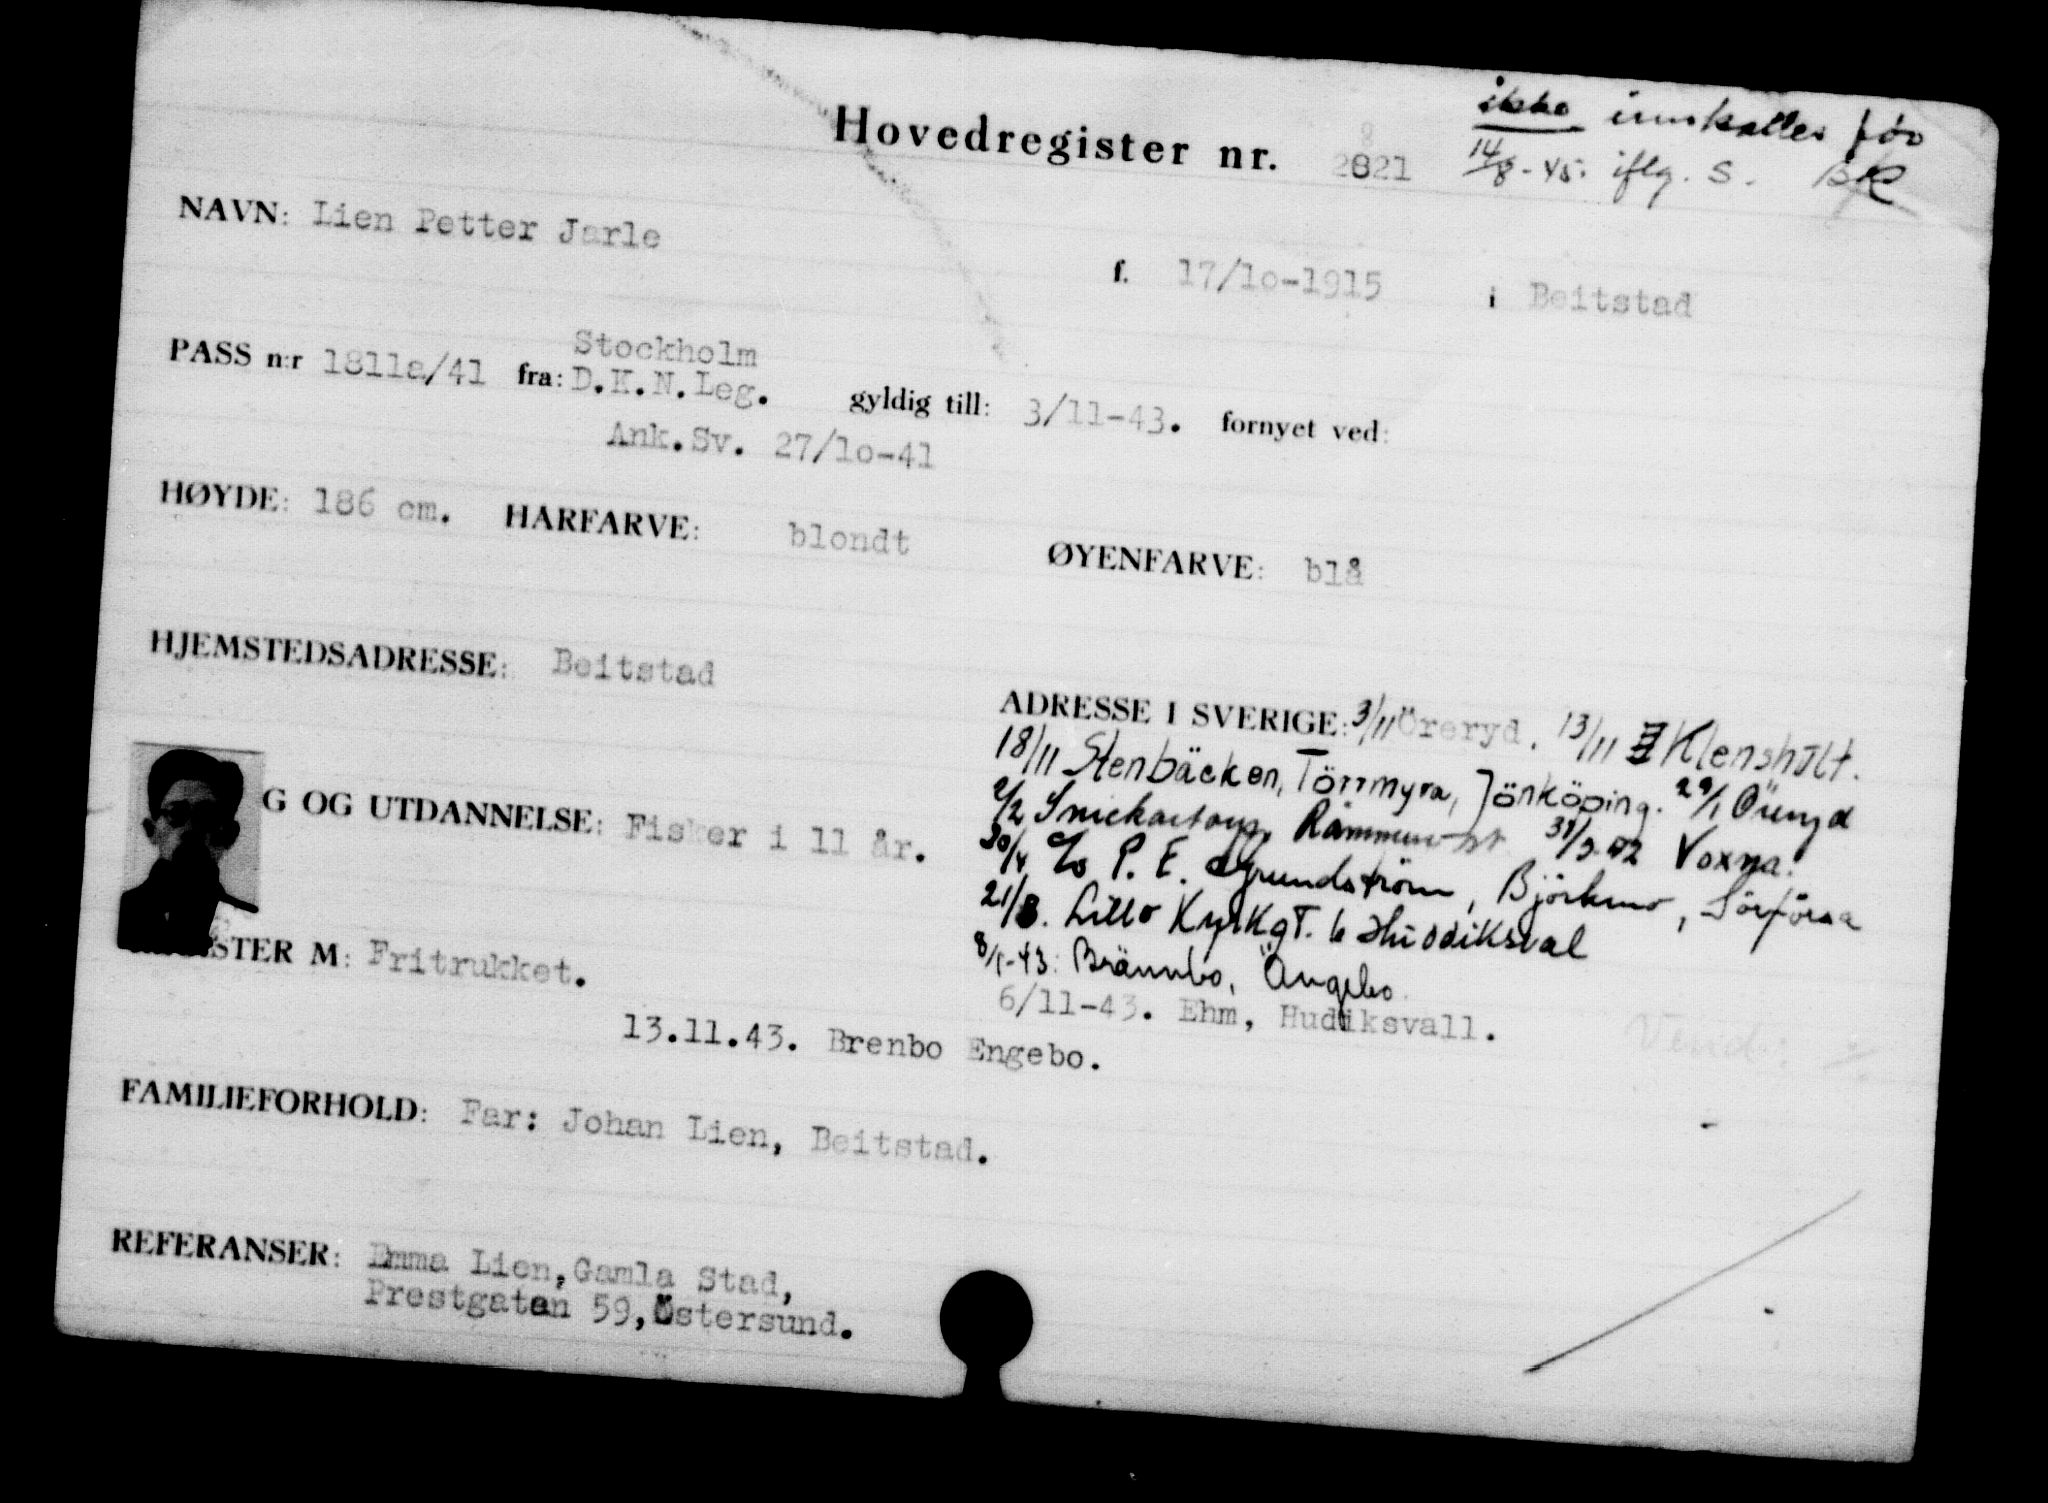 ikke innkalles før
Hovedregister nr. 2821 14/8-45. iflg. S. BK
NAVN: Lien Petter Jarle
f. 17/10-1915 i Beitstad
Stockholm
PASS n:r 1811a/41 fra: D.K.N.Leg. gyldig till: 3/11-43. fornyet ved:
Ank.Sv. 27/10-41
HØYDE: 186 cm. HARFARVE: blondt ØYENFARVE: blå
HJEMSTEDSADRESSE: Beitstad
ADRESSE I SVERIGE: 3/11 Öreryd. 13/11 Klenshult.
18/11 Stenbäcken, Törrmyra, Jönköping. 29/1 Öreryd
2/2 31/3-42 Voxna.
G OG UTDANNELSE: Fisker i 11 år.
20/4 c/o P. E. Grundström, Björkmo, Sörforsa
21/8. Lilla Kyrkgt. 6 Hudiksval
STER M: Fritrukket.
8/1-43: Brännbo, Ängebo.
6/11-43. Ehm, Hudiksvall.
13.11.43. Brenbo Engebo.
Vend:
FAMILIEFORHOLD: Far: Johan Lien, Beitstad.
REFERANSER: Emma Lien, Gamla Stad,
Prestgaten 59, Østersund.